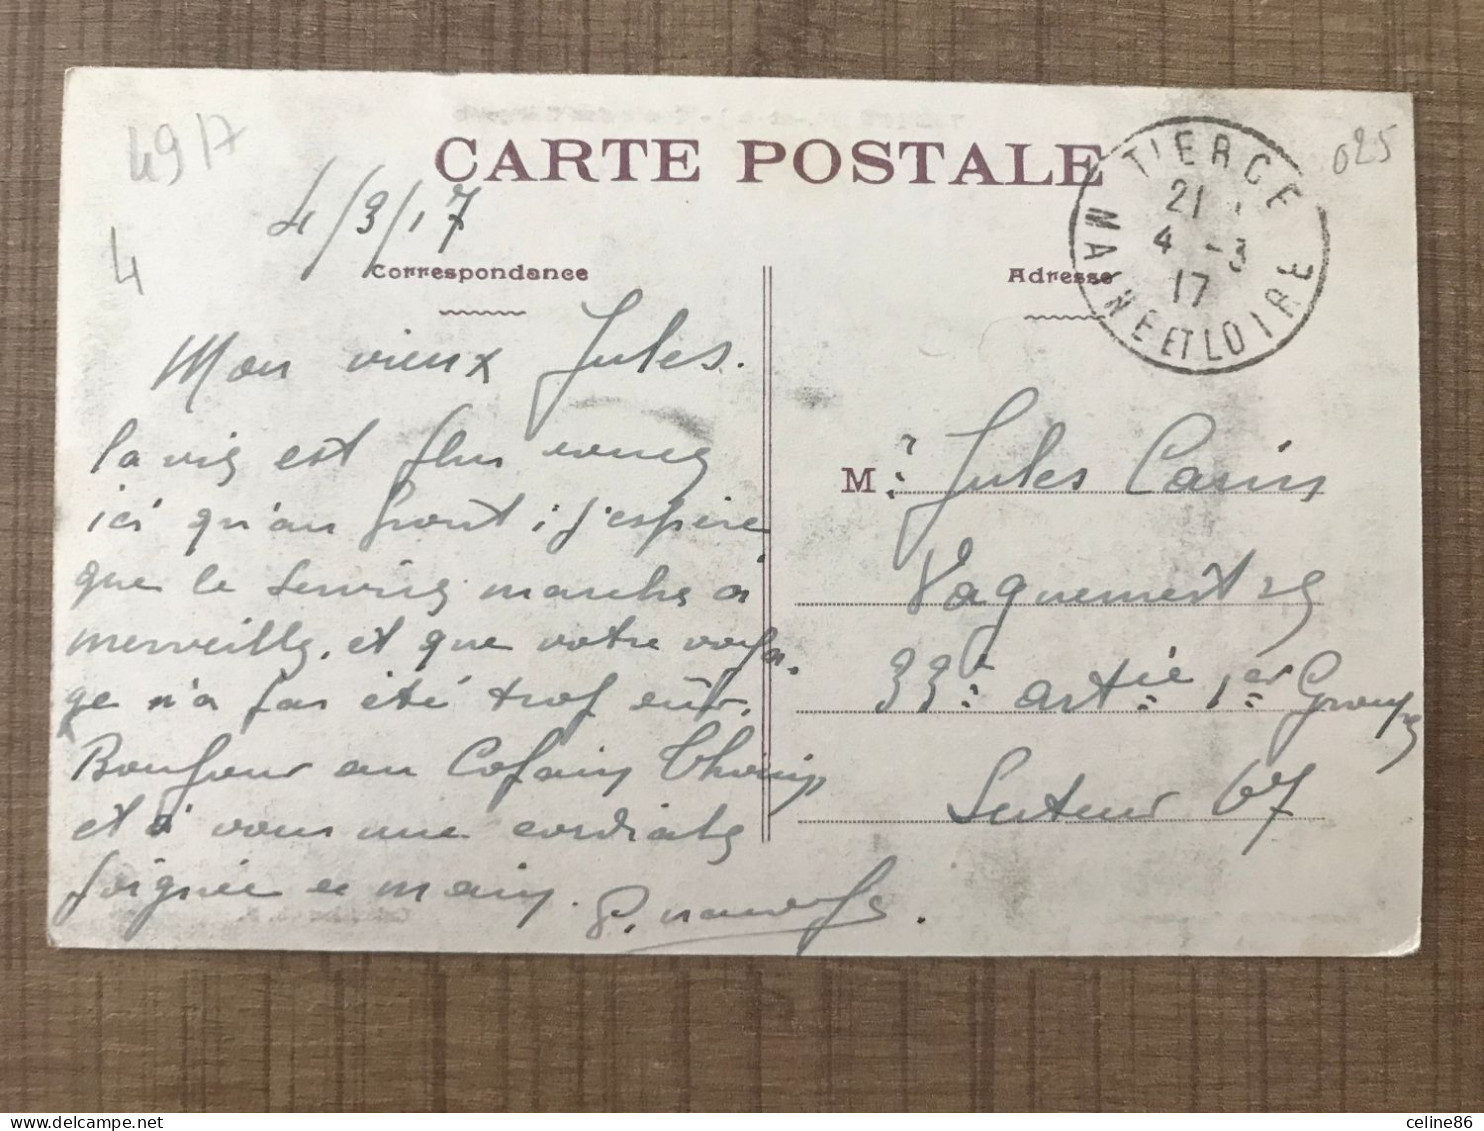 4917
4
CARTE POSTALE
4/3/17
025
TIERCE
21
4 -3
17
MAINE ET LOIRE
Correspondance
Adresse
Mon vieux Jules.
la vie est plus
ici qu'au front ; j'espère
que le service marche à
merveille, et que votre voya-
ge n'a pas été trop dur.
Bonjour au Copain
et à vous une cordiale
poignée de main.
M : Jules
Vaguemestre
33e artie 1er Groupe
Secteur 67
celine86